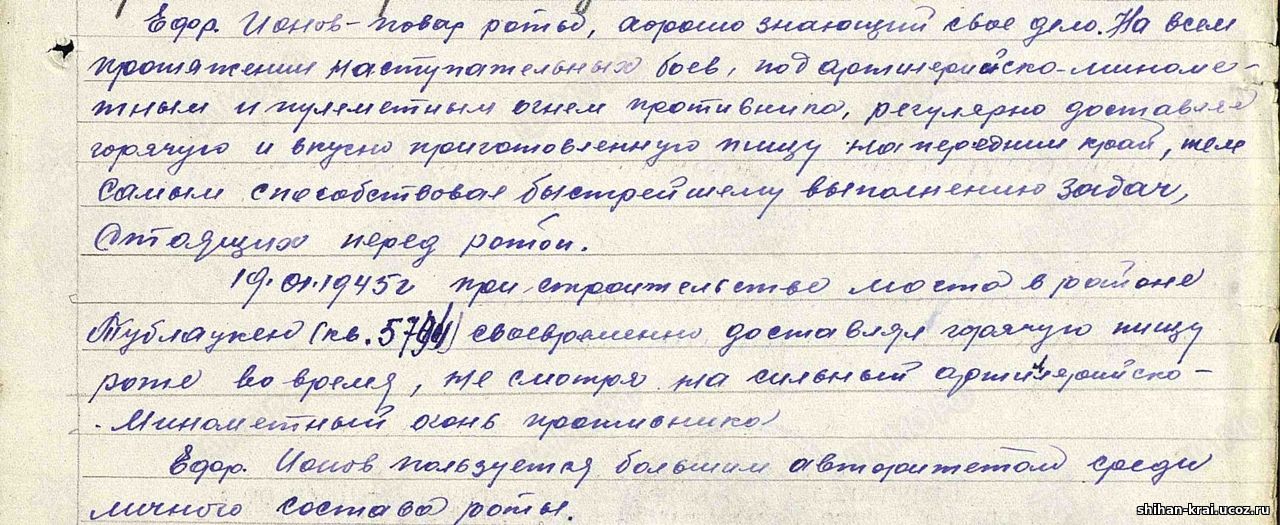 Ефр. Ионов - повар роты, хорошо знающий свое дело. На всем
протяжении наступательных боев, под артилерийско-миноме-
тным и пулеметным огнем противника, регулярно доставлял
горячую и вкусно приготовленную пищу на передний край, тем
самым способствовал быстрейшему выполнению задач,
стоящих перед ротой.
19.01.1945г при строительстве моста в районе
Тублаукен (кв. 5794) своевременно доставлял горячую пищу
роте во время, не смотря на сильный артилерийско-
- Минометный огонь противника
Ефр. Ионов пользуется большим авторитетом среди
личного состава роты.
shihan-krai.ucoz.ru